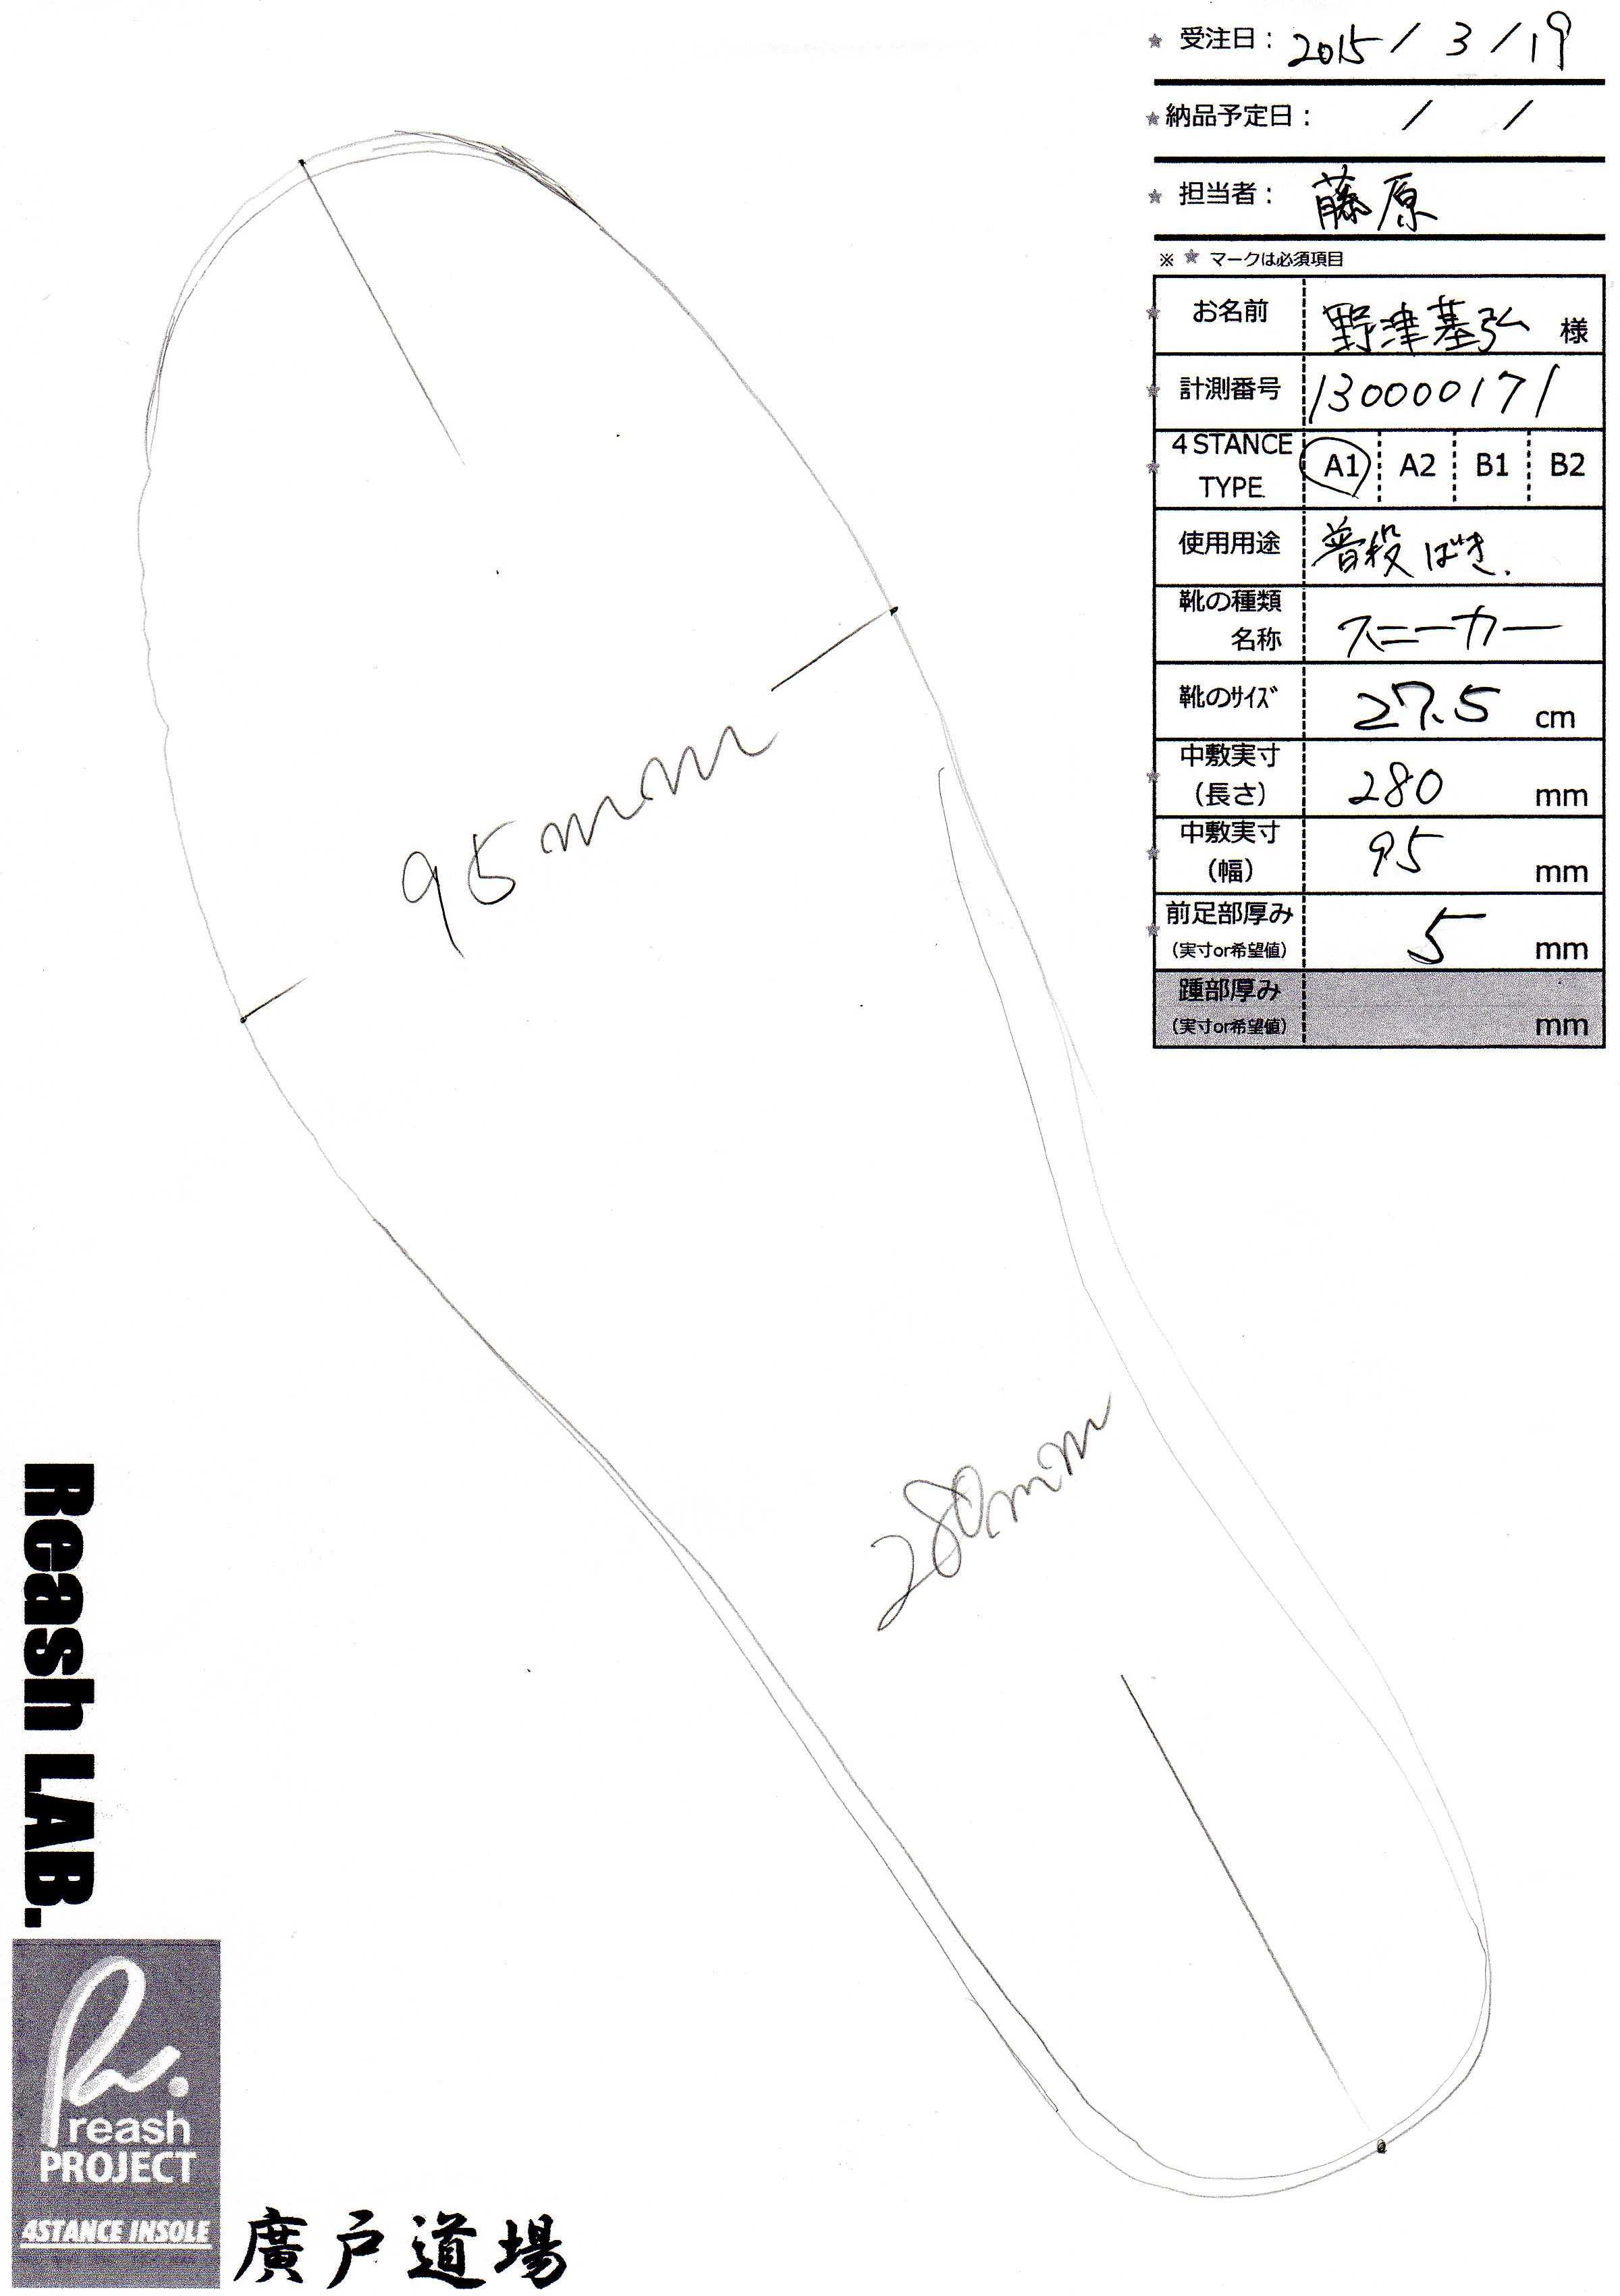 ★ 受注日: 2015 / 3 / 19
★ 納品予定日: / /
★ 担当者: 藤原
※ ★ マークは必須項目
★ お名前 野津基弘 様
★ 計測番号 130000171
★ 4STANCE TYPE A1 A2 B1 B2
使用用途 普段ばき.
靴の種類
名称 スニーカー
靴のサイズ 27.5 cm
★ 中敷実寸(長さ) 280 mm
★ 中敷実寸(幅) 95 mm
★ 前足部厚み(実寸or希望値) 5 mm
踵部厚み(実寸or希望値) mm
95mm
280mm
Reash LAB.
R.
reash
PROJECT
4STANCE INSOLE
廣戸道場